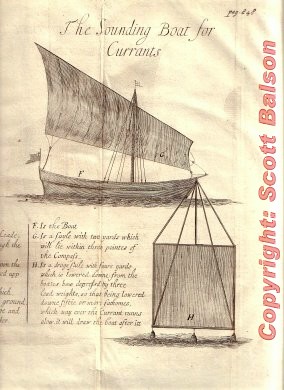 pag. 648
The Sounding Boat for
Currants
F
G
F. Is the Boat
G. Is a Saile with two yards which
will lie within three pointes of
the Compass.
H. Is a drags Saile with foure yards
which is lowered downe from the
boates bow depressed by three
Lead weights, so that being lowered
downe fiftie or more fathomes,
which way ever the Currant runns
alow it will draw the boat after itt
the
up
ground
and
H
Copyright: Scott Balson